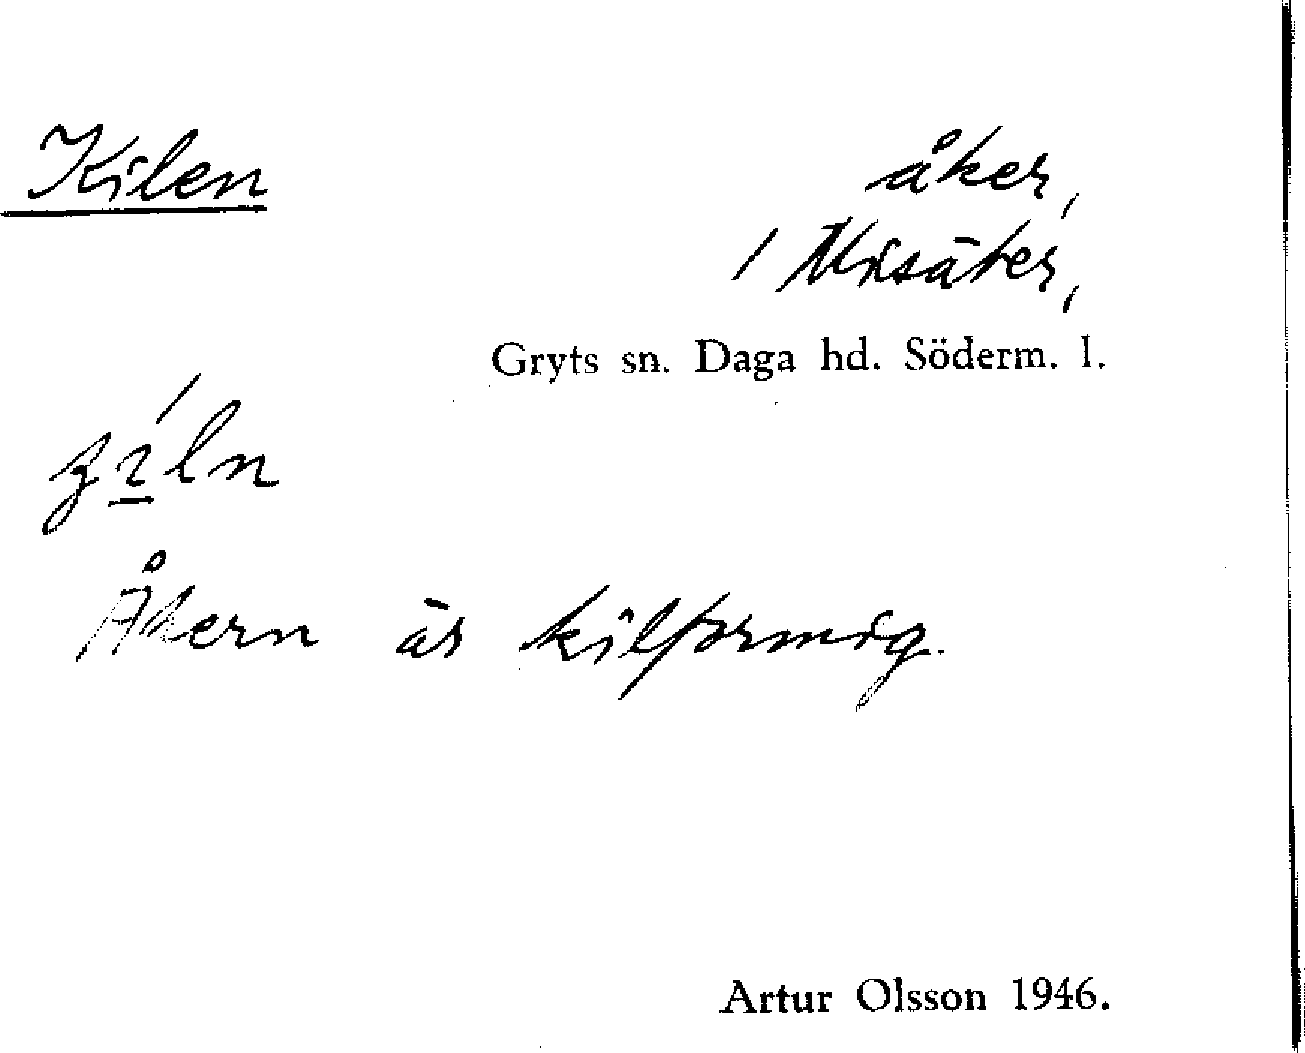 Kilen
åker,
/ Misäter,
Gryts sn. Daga hd. Söderm. l.
Åkern är kilformig.
Artur Olsson 1946.